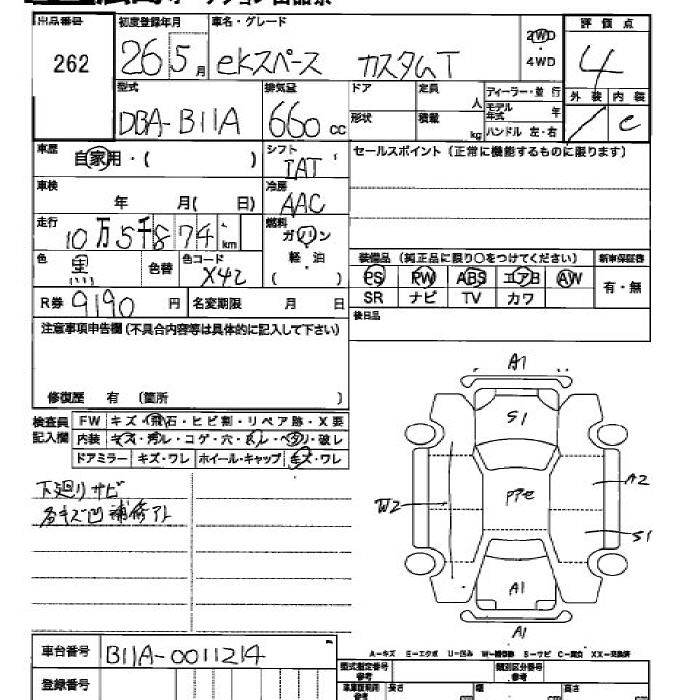 出品番号
262
初度登録年月
26 5月
車名・グレード
eKスペース カスタムT
2WD
・
4WD
評価点
4
外装 内装
/ C
型式
DBA-B11A
排気量
660 cc
ドア
定員
人
ディーラー・並 行
形状
積載
kg
モデル年式 年
ハンドル 左・右
車歴
自家用・( )
シフト
IAT
セールスポイント(正常に機能するものに限ります)
車検
年 月( 日)
冷房
AAC
走行
10万5千874 km
燃料
ガソリン
軽 油
( )
色
黒
色替
色コード
X42
装備品 (純正品に限り○をつけてください)
新車保証書
PS PW ABS エアB AW
有・無
SR ナビ TV カワ
R券 9190 円
名変期限 月 日
後日品
注意事項申告欄(不具合内容等は具体的に記入して下さい)
修復歴 有 (箇所 )
検査員
記入欄
FW キズ・飛石・ヒビ割・リペア跡・X要
内装 キズ・汚レ・コゲ・穴・
ドアミラー キズ・ワレ ホイール・キャップ キズ・ワレ
下廻りサビ
各キズ凹補修アト
A1
S1
W2
A2
S1
A1
A1
A-キズ E-エクボ U-凹み W-補修跡 S-サビ C-腐食 XX-交換済
車台番号
B11A-0011214
登録番号
型式指定番号
参考
類別区分番号
参考
長さ 幅 高さ